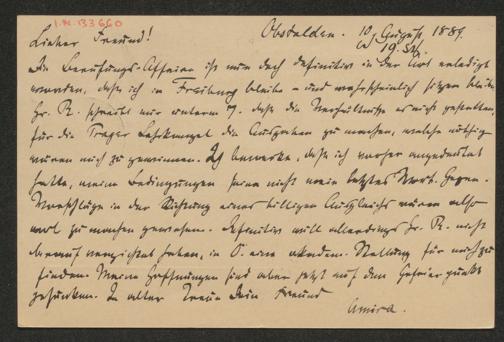 I.N. 133660
Obstalden. 10. August 1889.
Lieber Freund!
Die Berufungs-Affaire ist nun doch definitiv in der Art erledigt
worden, daß ich in Freiburg bleibe – und wahrscheinlich sitzen bleibe.
Hr. R. schreibt mir unterm 7. daß die Verhältnisse es nicht gestatten,
für die Prager Lehrkanzel die Ausgaben zu machen, welche nöthig
wären mich zu gewinnen. Ich bemerke, daß ich vorher angedeutet
hatte, meine Bedingungen seien nicht mein letztes Wort. Gegen-
Vorschläge in der Richtung eines billigen Ausgleichs wären also
wol zu machen gewesen. Definitiv will allerdings Hr. R. nicht
darauf verzichtet haben, in Ö. eine akadem. Stellung für mich zu
finden. Meine Hoffnungen sind aber jetzt auf den Gefrierpunkt
gesunken. In alter Treue Dein Freund
Amira.